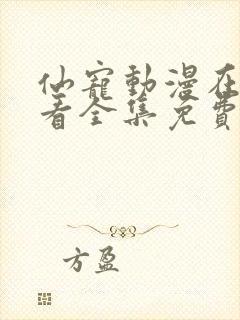 仙寵動漫在
看全集免費
方盈